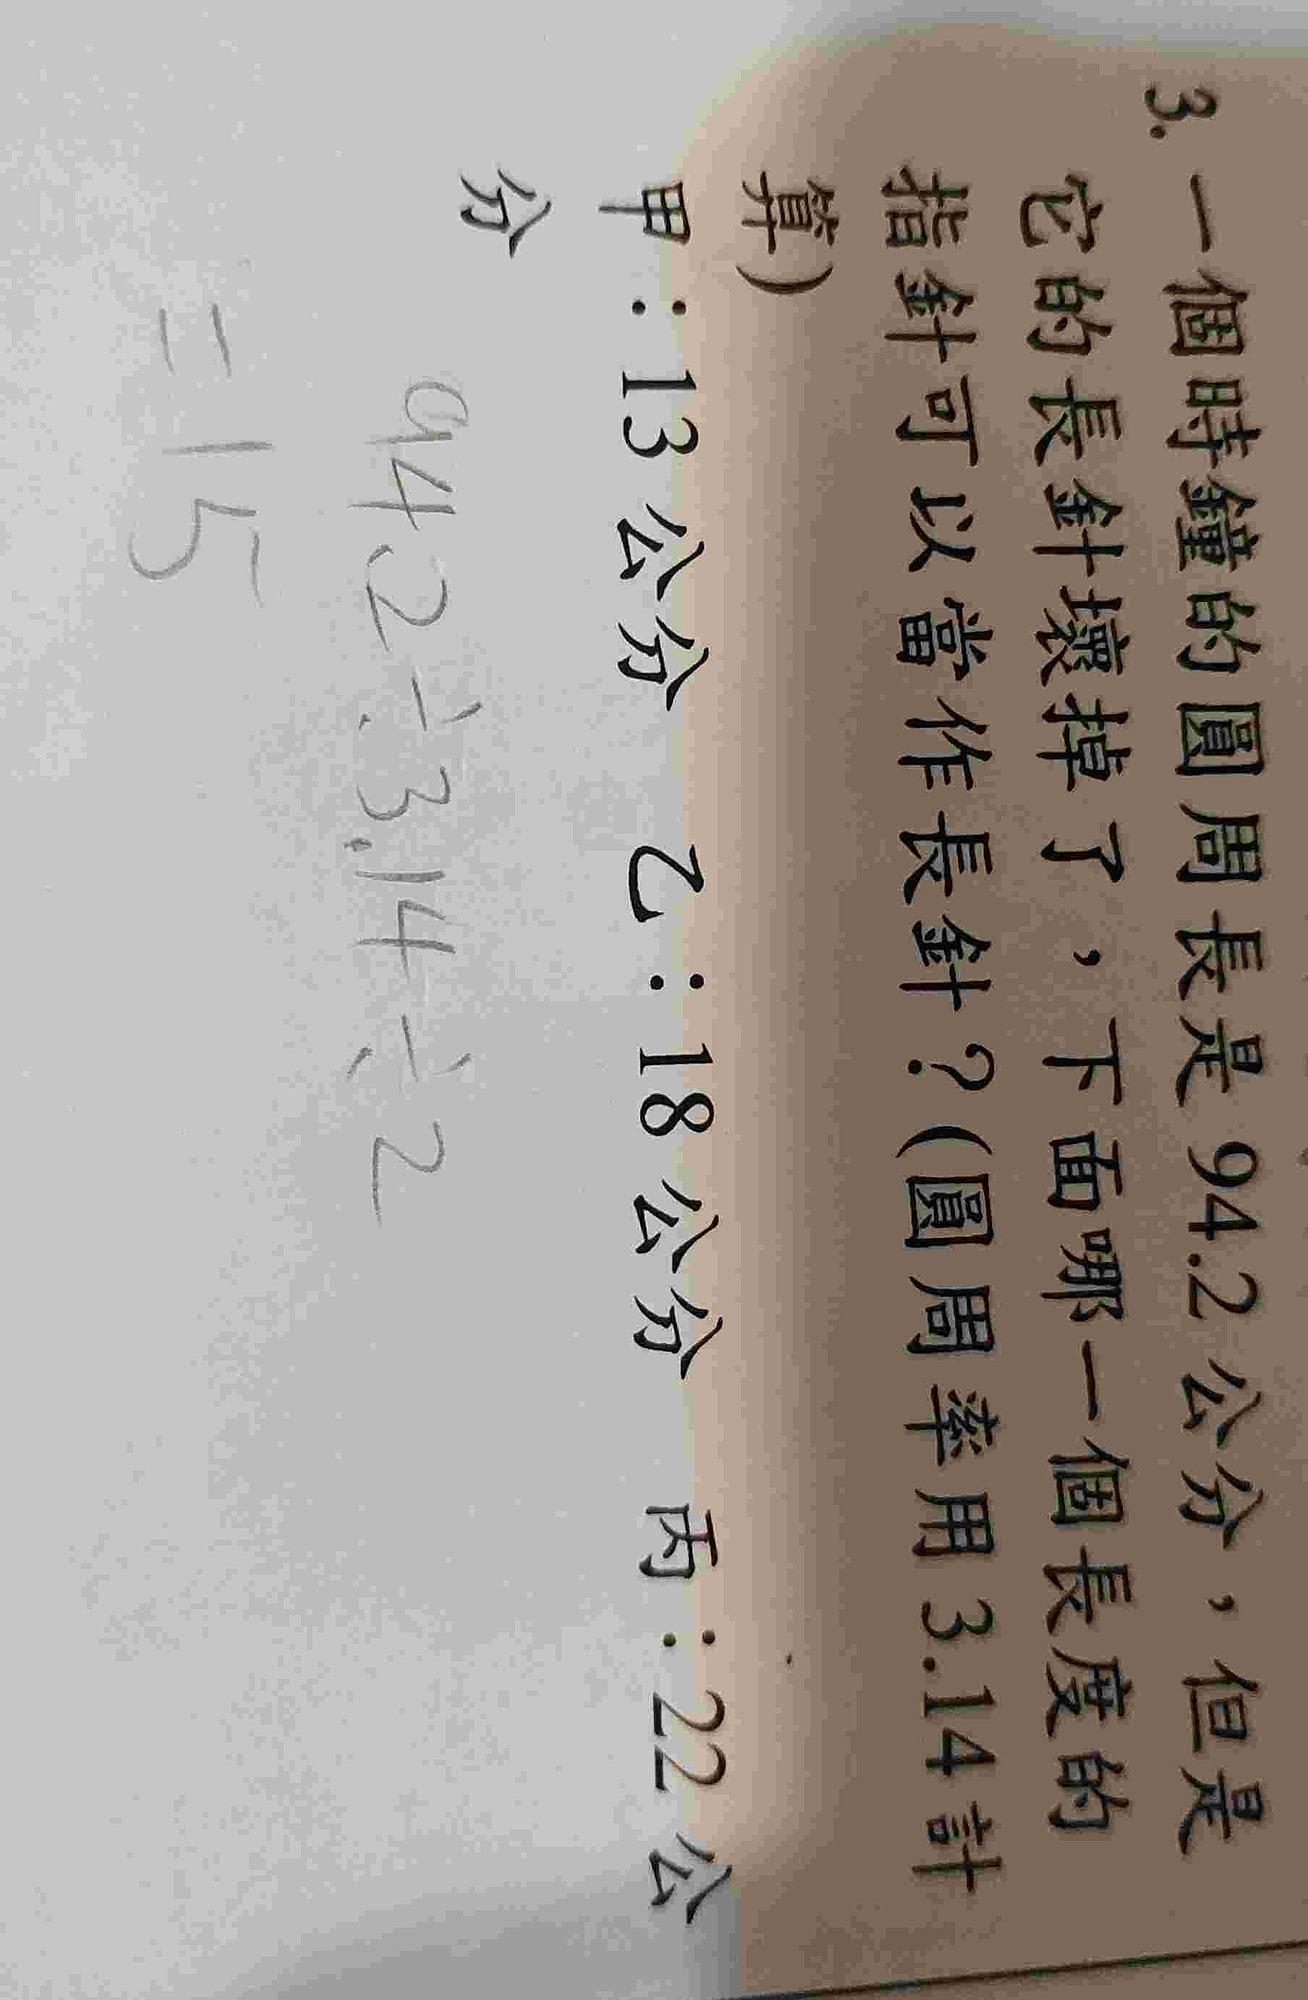 3. 一個時鐘的圓周長是 94.2 公分，但是
它的長針壞掉了，下面哪一個長度的
指針可以當作長針？(圓周率用 3.14 計
算)
甲：13 公分 乙：18 公分 丙：22 公
分
94.2÷3.14÷2
=15